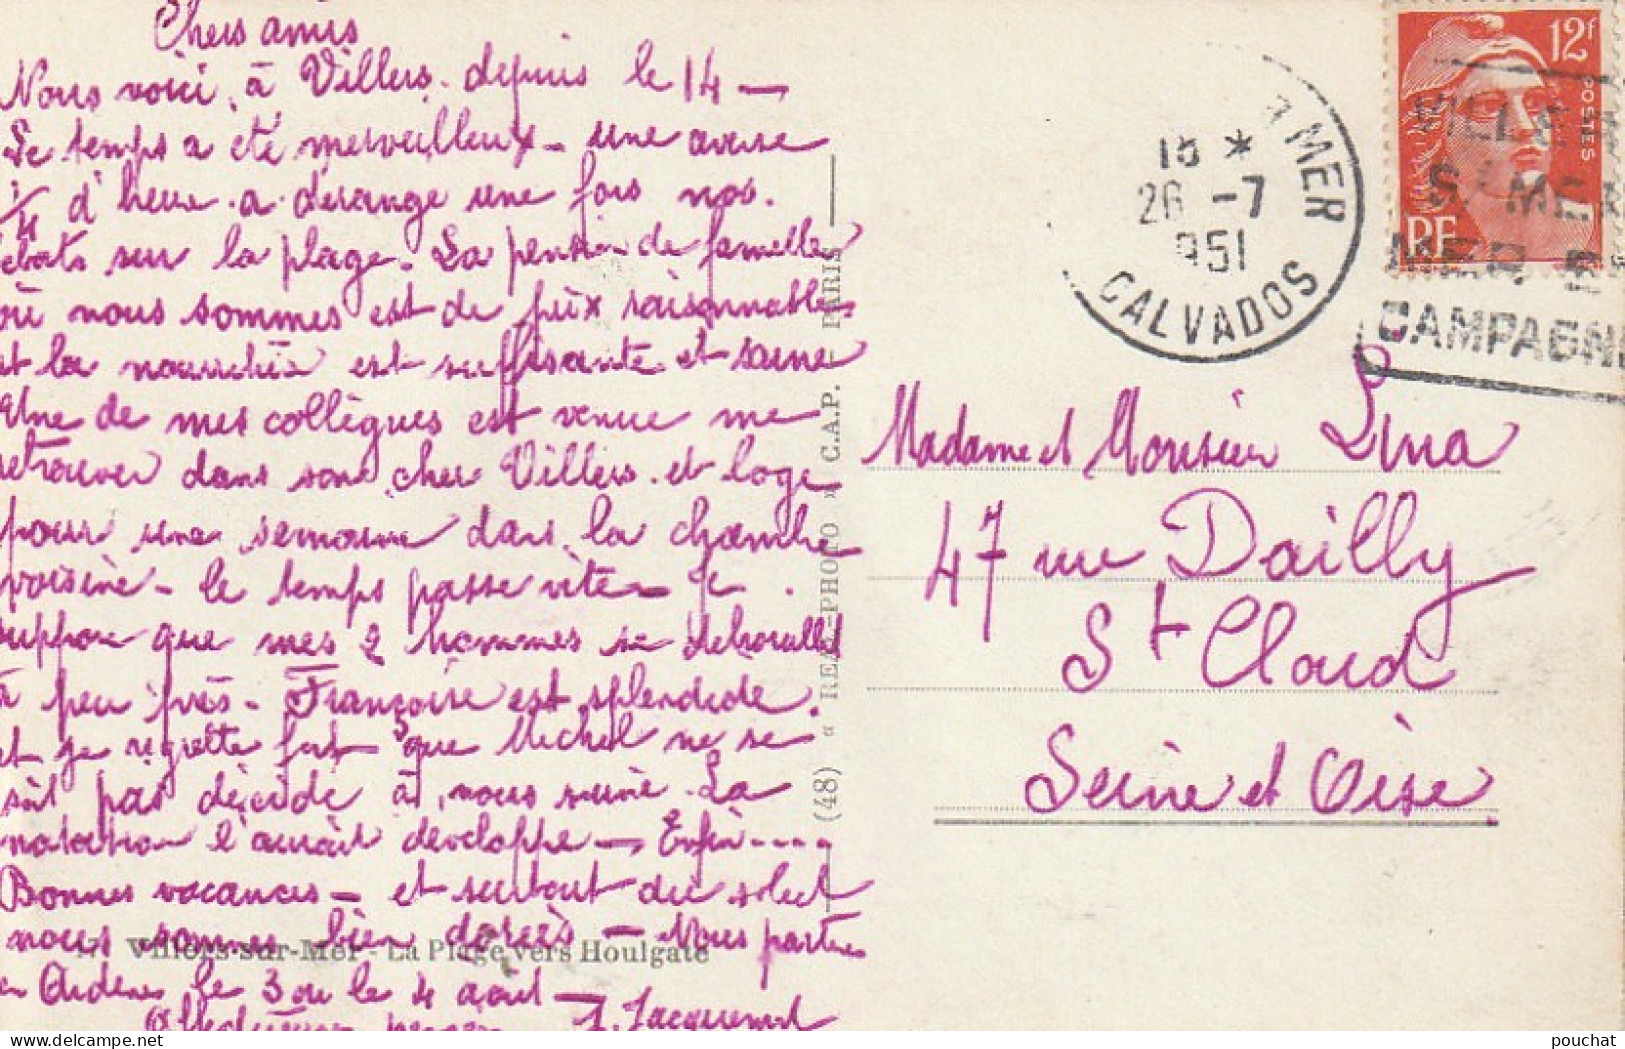 Chers amis
Nous voici à Villers depuis le 14 —
Le temps a été merveilleux - une averse
1/4 d'heure a dérangé une fois nos
ebats sur la plage. La pension de famille
où nous sommes est de prix raisonnable
et la nourriture est suffisante et saine
Une de mes collègues est venue me
retrouver dans son cher Villers et loge
pour une semaine dans la chambre
voisine - le temps passe vite - Je
suppose que mes 2 hommes se debrouillent
à peu près - Françoise est splendide.
et je regrette fort que Michel ne se
soit pas décidé à nous suivre. La
natation l'aurait developpé — Enfin ....
Bonnes vacances — et surtout du soleil
nous sommes bien dorées — Nous partons
en Ardennes le 3 ou le 4 août —
J. Jacquemart
17 Villers-sur-Mer - La Plage vers Houlgate
(48) « REAL-PHOTO » C.A.P. PARIS
MER
15 *
26 -7
951
CALVADOS
12f
POSTES
RF
VILLE
S. MER
MER
CAMPAGNE
Madame et Monsieur Lina
47 rue Dailly
St Cloud
Seine et Oise
pouchat